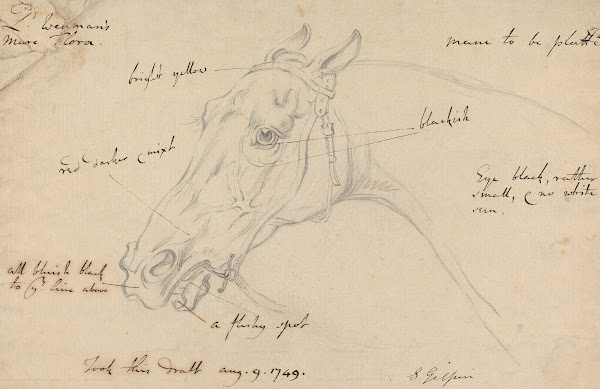 Ld. Wenman's
Mare Flora.
mane to be platte
bright yellow
blackish
red darker & mixt
Eye black, rather
small, & no white
seen.
all bluish black
to ye. line above
a spot
Took this Dratt aug. 9. 1749.
S Gilpin